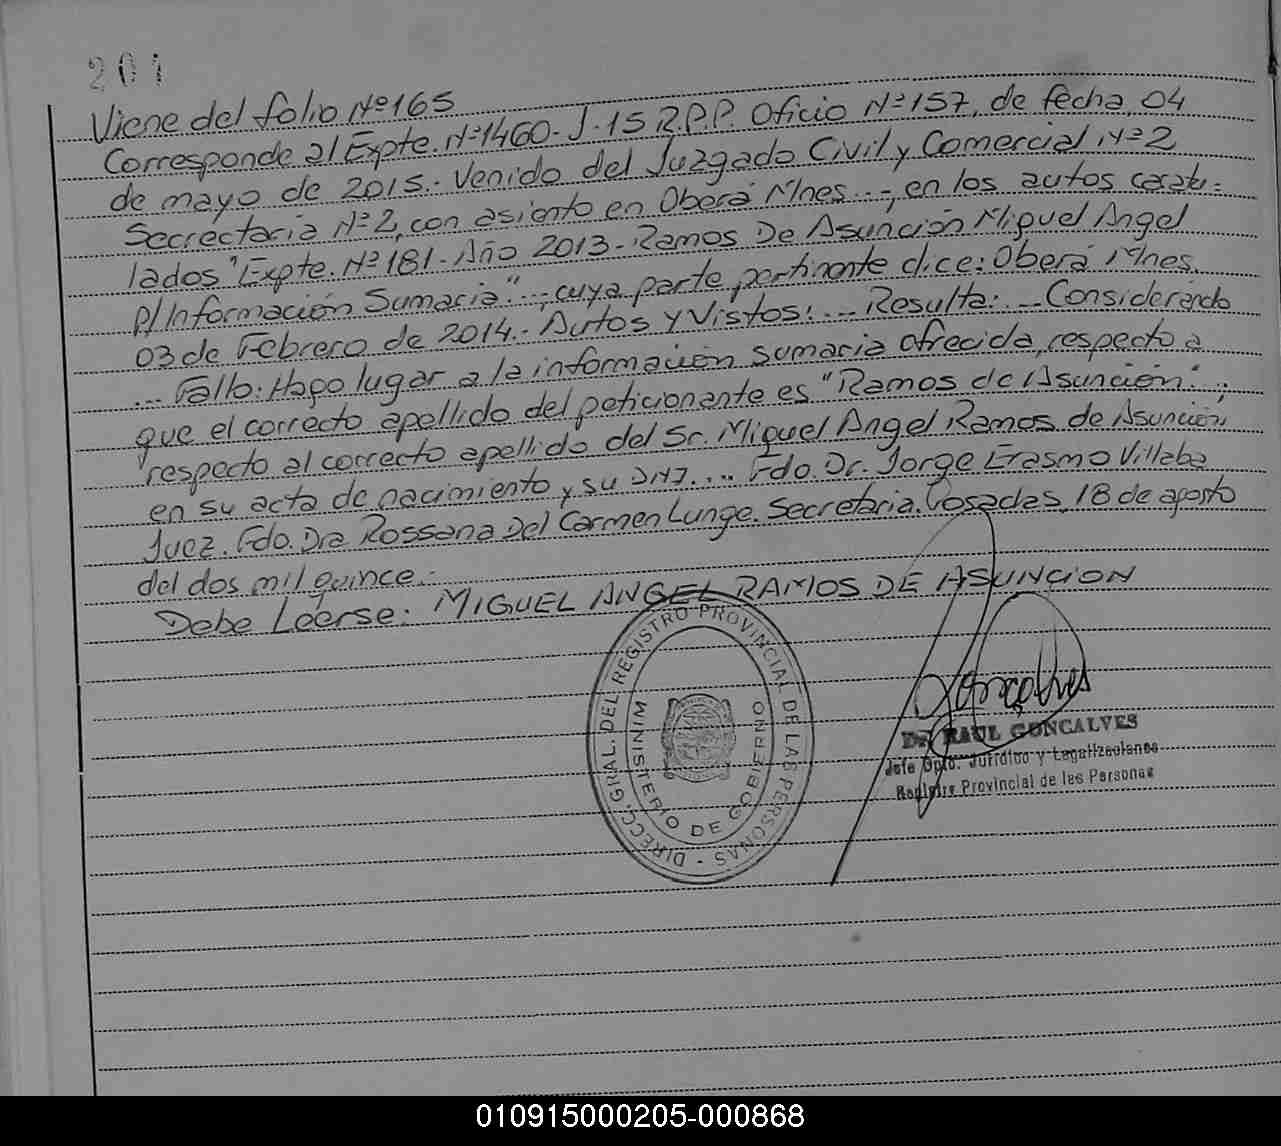 201
Viene del folio Nº 165
Corresponde al Expte. Nº 1460-J-15 R.P.P. Oficio Nº 157, de fecha, 04
de mayo de 2015.- Venido del Juzgado Civil y Comercial Nº 2
Secrectaria Nº 2, con asiento en Oberá Mnes...-, en los autos caratu=
lados "Expte. Nº 181-Año 2013-Ramos De Asunción Miguel Angel
P/Información Sumaria"...-, cuya parte pertinente dice: Oberá Mnes.
03 de Febrero de 2014.- Autos y Vistos:... Resulta:... Considerando
... Fallo: Hago lugar a la información sumaria ofrecida, respecto a
que el correcto apellido del peticionante es "Ramos de Asunción".;
respecto al correcto apellido del Sr. Miguel Angel Ramos de Asunción,
en su acta de nacimiento y su DNI.... Fdo. Dr. Jorge Erasmo Villaba
Juez. Fdo. Dra Rossana Del Carmen Lunge. Secretaria. Posadas, 18 de agosto
del dos mil quince.-
Debe Léerse: MIGUEL ANGEL RAMOS DE ASUNCION
DIRECC. GRAL. DEL REGISTRO PROVINCIAL DE LAS PERSONAS -
MINISTERIO DE GOBIERNO
Goncalves
Dr. RAUL GONCALVES
Jefe Dpto. Jurídico y Legalizaciones
Registro Provincial de las Personas
010915000205-000868